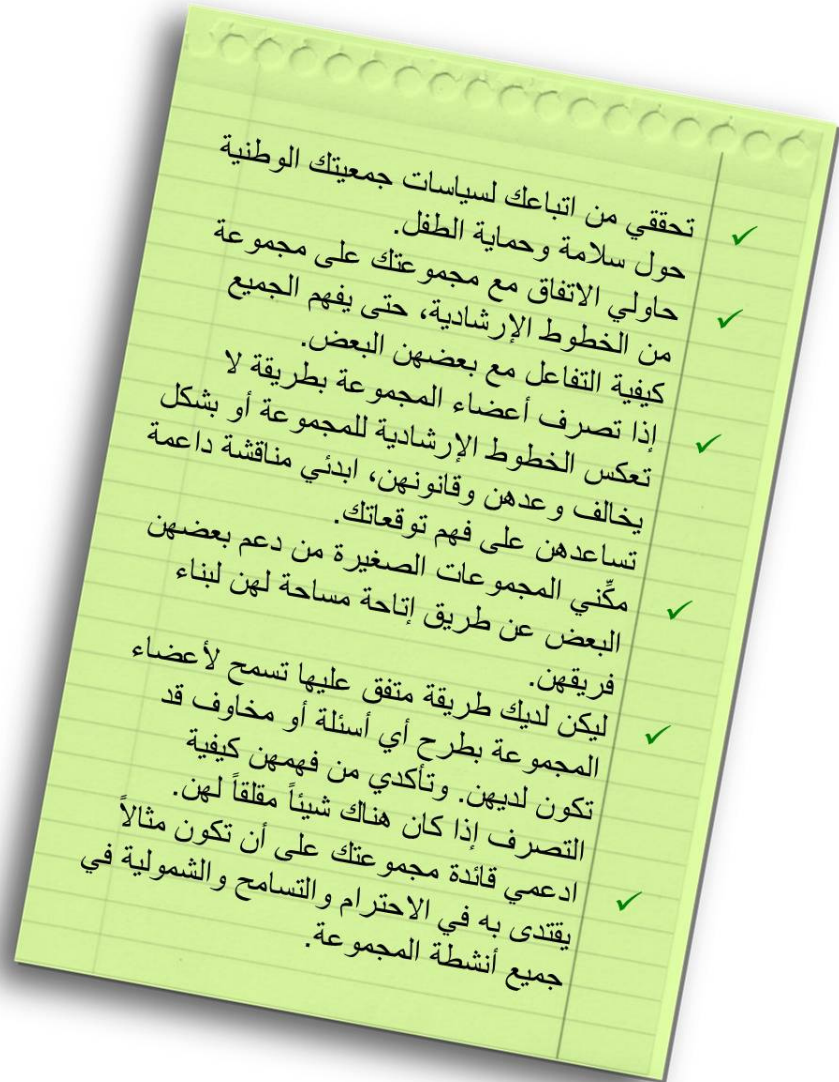 تحققي من اتباعك لسياسات جمعيتك الوطنية
حول سلامة وحماية الطفل.
حاولي الاتفاق مع مجموعتك على مجموعة
من الخطوط الإرشادية، حتى يفهم الجميع
كيفية التفاعل مع بعضهن البعض.
إذا تصرف أعضاء المجموعة بطريقة لا
تعكس الخطوط الإرشادية للمجموعة أو بشكل
يخالف وعدهن وقانونهن، ابدئي مناقشة داعمة
تساعدهن على فهم توقعاتك.
مكِّني المجموعات الصغيرة من دعم بعضهن
البعض عن طريق إتاحة مساحة لهن لبناء
فريقهن.
ليكن لديك طريقة متفق عليها تسمح لأعضاء
المجموعة بطرح أي أسئلة أو مخاوف قد
تكون لديهن. وتأكدي من فهمهن كيفية
التصرف إذا كان هناك شيئاً مقلقاً لهن.
ادعمي قائدة مجموعتك على أن تكون مثالاً
يقتدى به في الاحترام والتسامح والشمولية في
جميع أنشطة المجموعة.